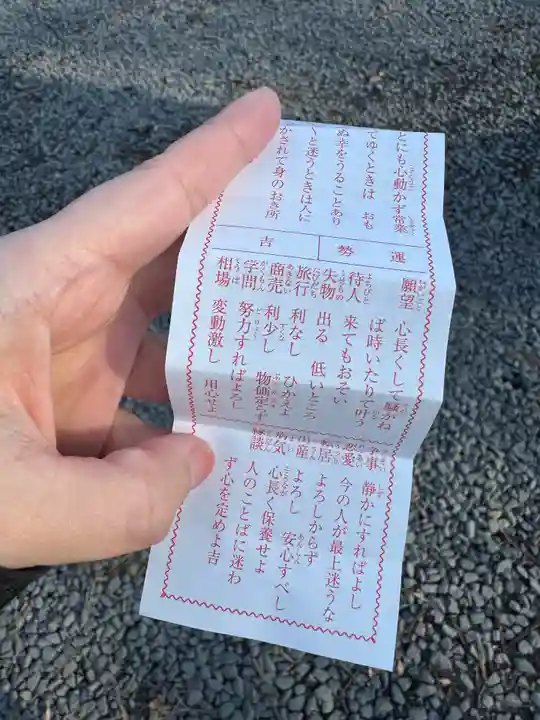 とにも心動かず常業
てゆくときは おも
ぬ幸をうることあり
〱と迷うときは人に
かされて身のおき所
運勢
吉
願望 心長くして騒がね
ば時いたりて叶う
待人 来てもおそい
失物 出る 低いところ
旅行 利なし ひかえよ
商売 利少し 物価定らず
学問 努力すればよろし
相場 変動激し 用心せよ
争事 静かにすればよし
恋愛 今の人が最上迷うな
転居 よろしからず
出産 よろし 安心すべし
病気 心長く保養せよ
縁談 人のことばに迷わ
ず心を定めよ吉